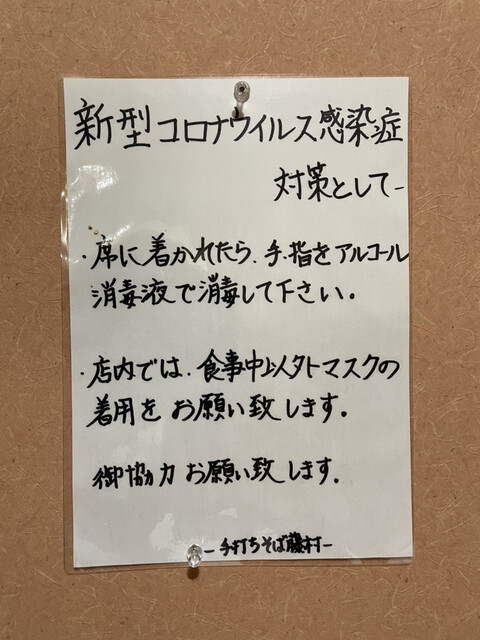 新型コロナウイルス感染症
対策として-
・席に着かれたら、手、指をアルコール
消毒液で消毒して下さい。
・店内では、食事中以外マスクの
着用をお願い致します。
御協力お願い致します。
-手打ちそば藤村-